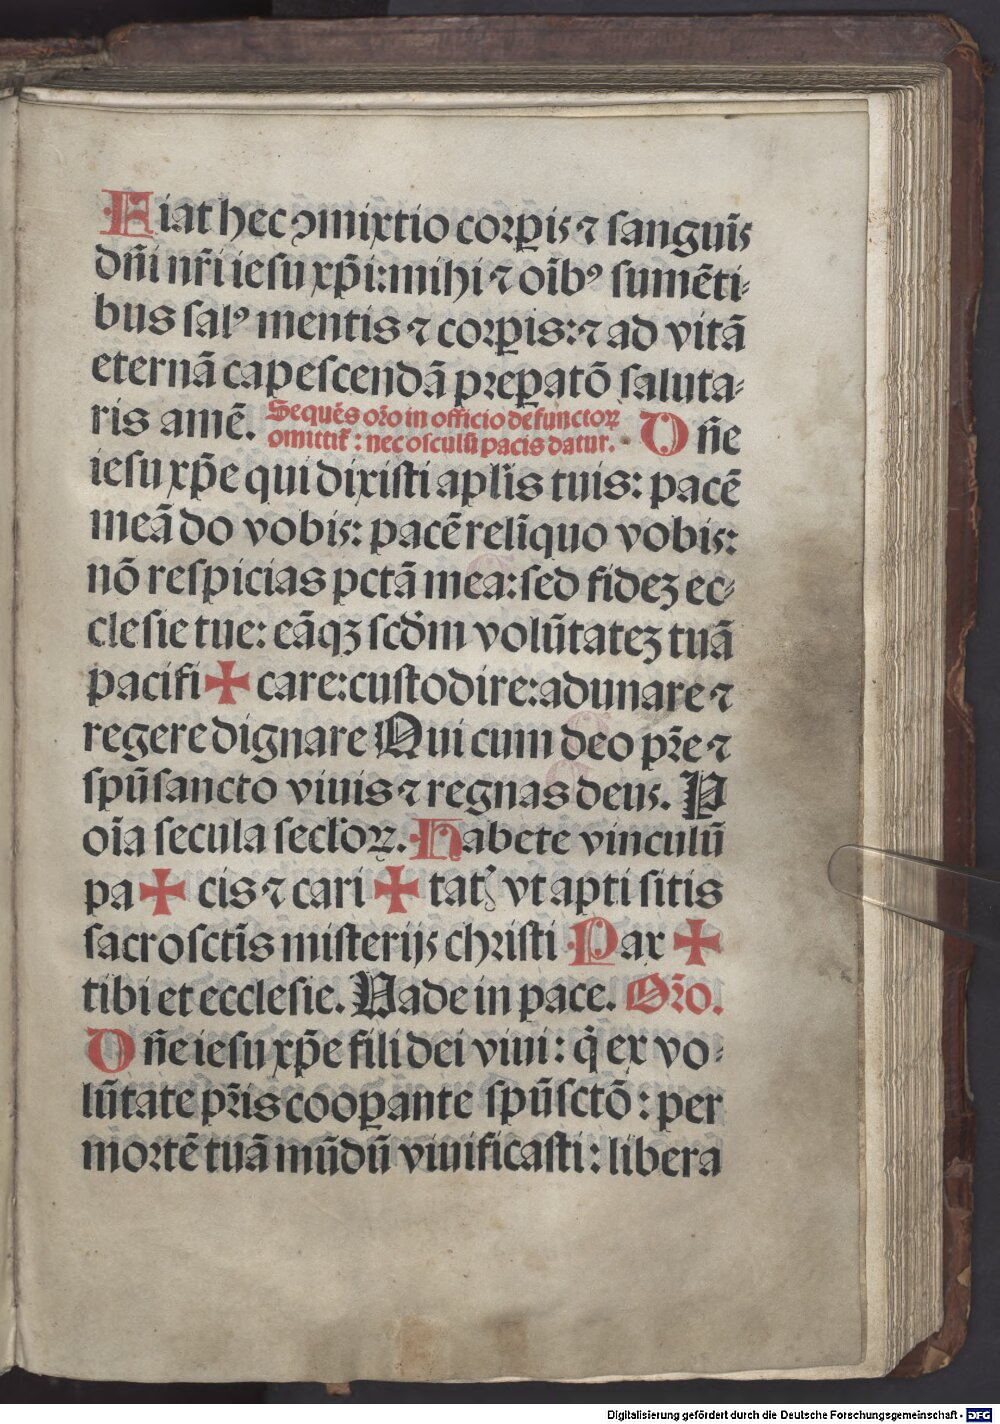 Fiat hec ꝯmixtio corꝑis ⁊ sanguīs
dn̄i nr̄i iesu xp̄i: mihi ⁊ oīb⁹ sumēti⸗
bus sal⁹ mentis ⁊ corꝑis: ⁊ ad vitā
eternā capescendā preꝑatō saluta⸗
ris amē. Sequēs or̄o in officio defunctoꝝ
omittit᷑: nec osculū pacis datur. Dn̄e
iesu xp̄e qui dixisti aplīs tuis: pacē
meā do vobis: pacē relīquo vobis:
nō respicias pctā mea: sed fideꝫ ec⸗
clesie tue: eāqꝫ scd̄m volūtateꝫ tuā
pacifi ✠ care: custodire: adunare ⁊
regere dignare Qui cum deo pr̄e ⁊
spū sancto viuis ⁊ regnas deus. P
oīa secula secl̄oꝝ. Habete vinculū
pa ✠ cis ⁊ cari ✠ tat᷑ vt apti sitis
sacrosctīs misterijs christi Pax ✠
tibi et ecclesie. Vade in pace. Or̄o.
Dn̄e iesu xp̄e fili dei viui: q̇ ex vo⸗
lūtate pr̄is cooꝑante spū sctō: per
mortē tuā mūdū viuificasti: libera
Digitalisierung gefördert durch die Deutsche Forschungsgemeinschaft - DFG